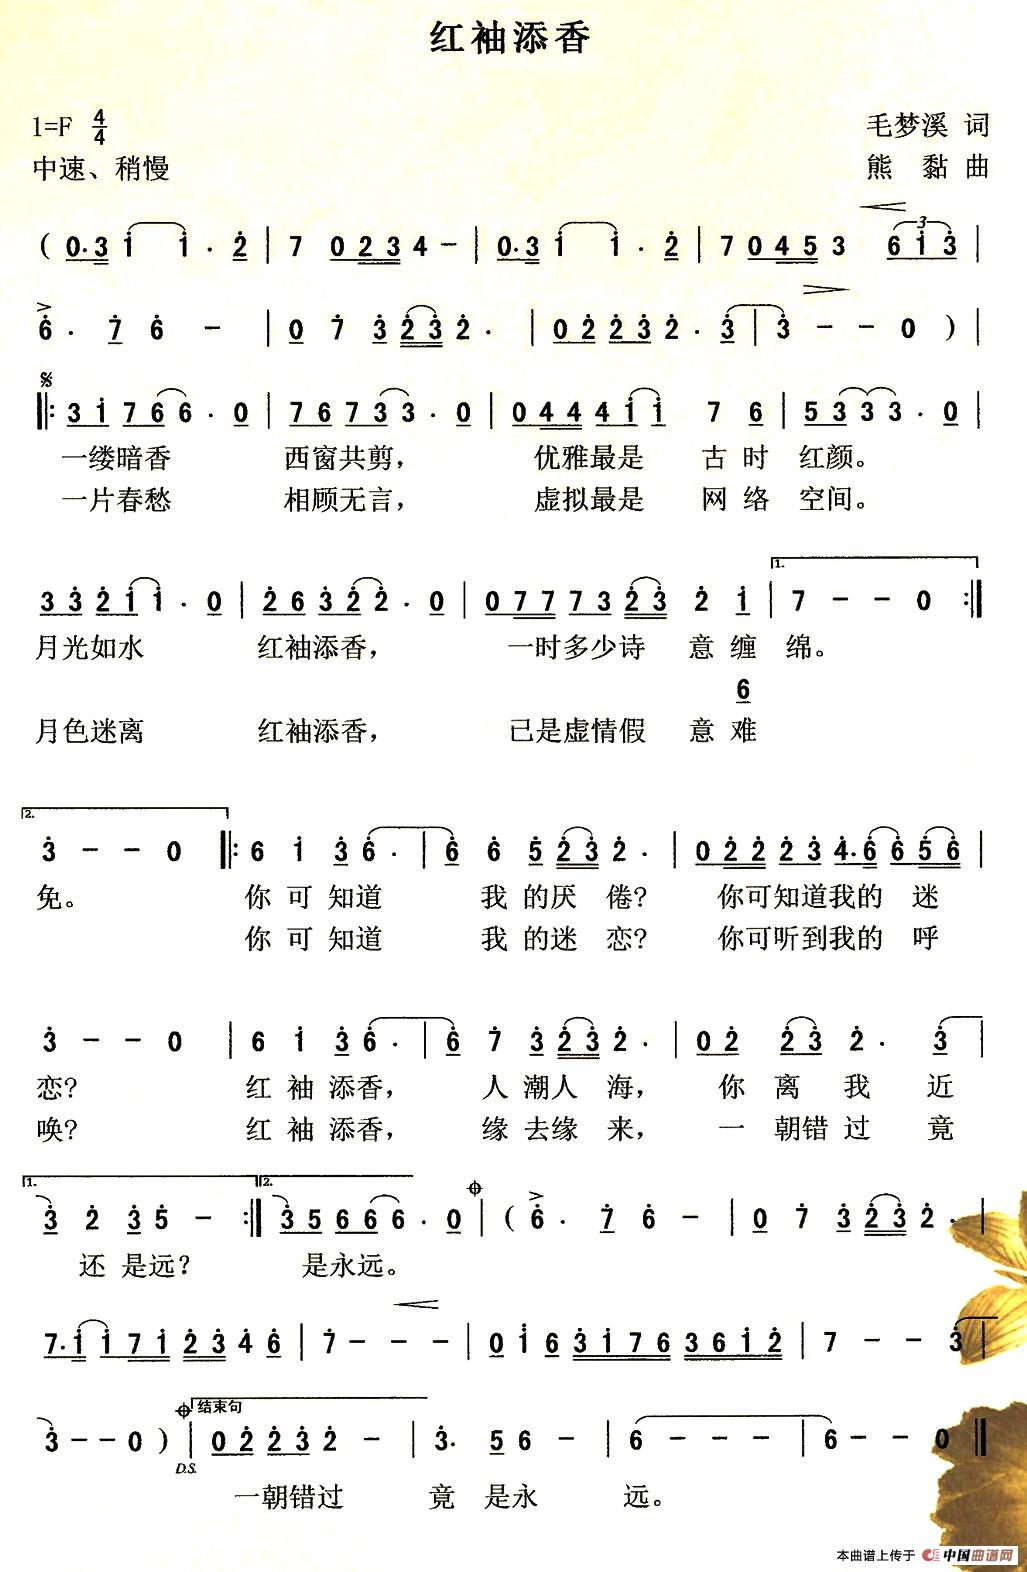 红袖添香
1=F 4/4
毛梦溪 词
中速、稍慢
熊 黏 曲
( 0·3 1 1· 2 | 7 0 2 3 4 - | 0·3 1 1· 2 | 7 0 4 5 3 6 1 3 |
6· 7 6 - | 0 7 3 2 3 2· | 0 2 2 3 2· 3 | 3 - - 0 ) |
3 1 7 6 6· 0 | 7 6 7 3 3· 0 | 0 4 4 4 1 1 7 6 | 5 3 3 3· 0 |
一缕暗香 西窗共剪, 优雅最是 古时 红颜。
一片春愁 相顾无言, 虚拟最是 网络 空间。
1.
3 3 2 1 1· 0 | 2 6 3 2 2· 0 | 0 7 7 7 3 2 3 2 1 | 7 - - 0 :|
月光如水 红袖添香, 一时多少诗 意缠 绵。
6
月色迷离 红袖添香, 已是虚情假 意难
2.
3 - - 0 |: 6 1 3 6· | 6 6 5 2 3 2· | 0 2 2 2 3 4·6 6 5 6 |
免。 你可知道 我的厌倦? 你可知道我的 迷
你可知道 我的迷恋? 你可听到我的 呼
3 - - 0 | 6 1 3 6· | 6 7 3 2 3 2· | 0 2 2 3 2· 3 |
恋? 红袖添香, 人潮人海, 你离我近
唤? 红袖添香, 缘去缘来, 一朝错过竟
1. 2.
3 2 3 5 - :| 3 5 6 6 6· 0 | ( 6· 7 6 - | 0 7 3 2 3 2· |
还是远? 是永远。
7·1 1 7 1 2 3 4 6 | 7 - - - | 0 1 6 3 1 7 6 3 6 1 2 | 7 - - 3 |
结束句
3 - - 0 ) | 0 2 2 3 2 - | 3· 5 6 - | 6 - - - | 6 - - 0 ||
D.S.
一朝错过 竟是永 远。
本曲谱上传于 中国曲谱网